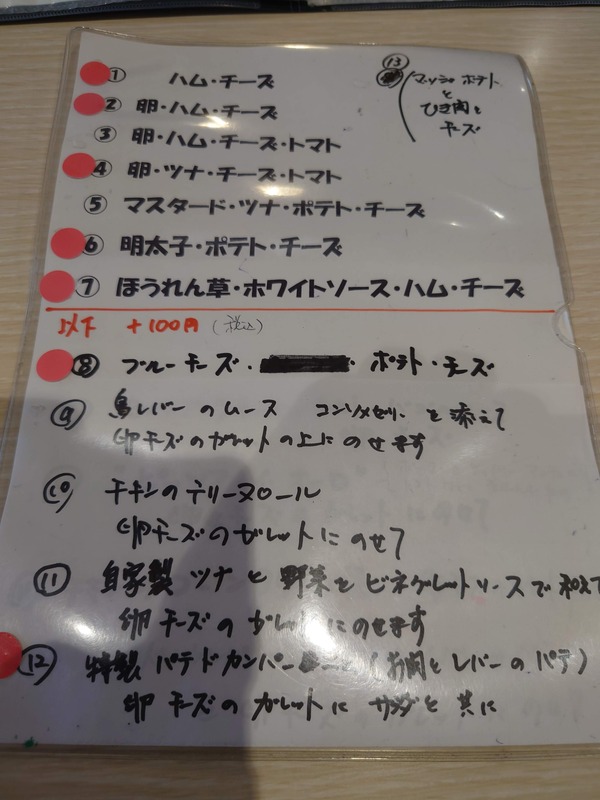 ① ハム・チーズ
② 卵・ハム・チーズ
③ 卵・ハム・チーズ・トマト
④ 卵・ツナ・チーズ・トマト
⑤ マスタード・ツナ・ポテト・チーズ
⑥ 明太子・ポテト・チーズ
⑦ ほうれん草・ホワイトソース・ハム・チーズ
⑬
マッシュポテト
と
ひき肉と
チーズ
以下 +100円 (税込)
⑧ ブルーチーズ・ ポテト・チーズ
⑨ 鳥レバーのムース コンソメゼリーを添えて
卵チーズのガレットの上にのせます
⑩ チキンのテリーヌロール
卵チーズのガレットにのせて
⑪ 自家製ツナと野菜をビネグレットソースで和えて
卵チーズのガレットにのせます
⑫ 特製 パテドカンパーニュ (お肉とレバーのパテ)
卵チーズのガレットに サラダと共に